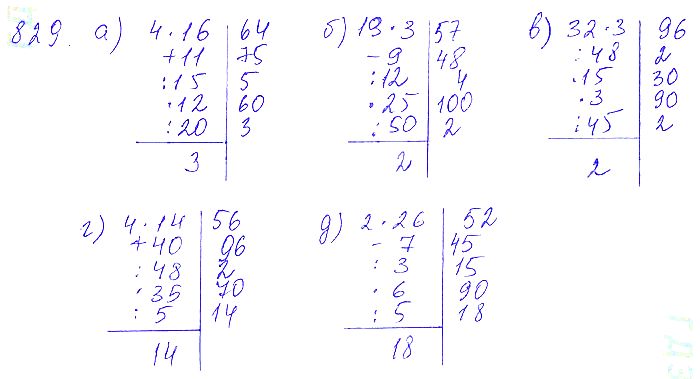 829. а) 4 · 16 | 64
+11 | 75
:15 | 5
·12 | 60
:20 | 3
3
б) 19 · 3 | 57
-9 | 48
:12 | 4
·25 | 100
:50 | 2
2
в) 32 · 3 | 96
:48 | 2
·15 | 30
·3 | 90
:45 | 2
2
г) 4 · 14 | 56
+40 | 96
:48 | 2
·35 | 70
:5 | 14
14
д) 2 · 26 | 52
-7 | 45
:3 | 15
·6 | 90
:5 | 18
18